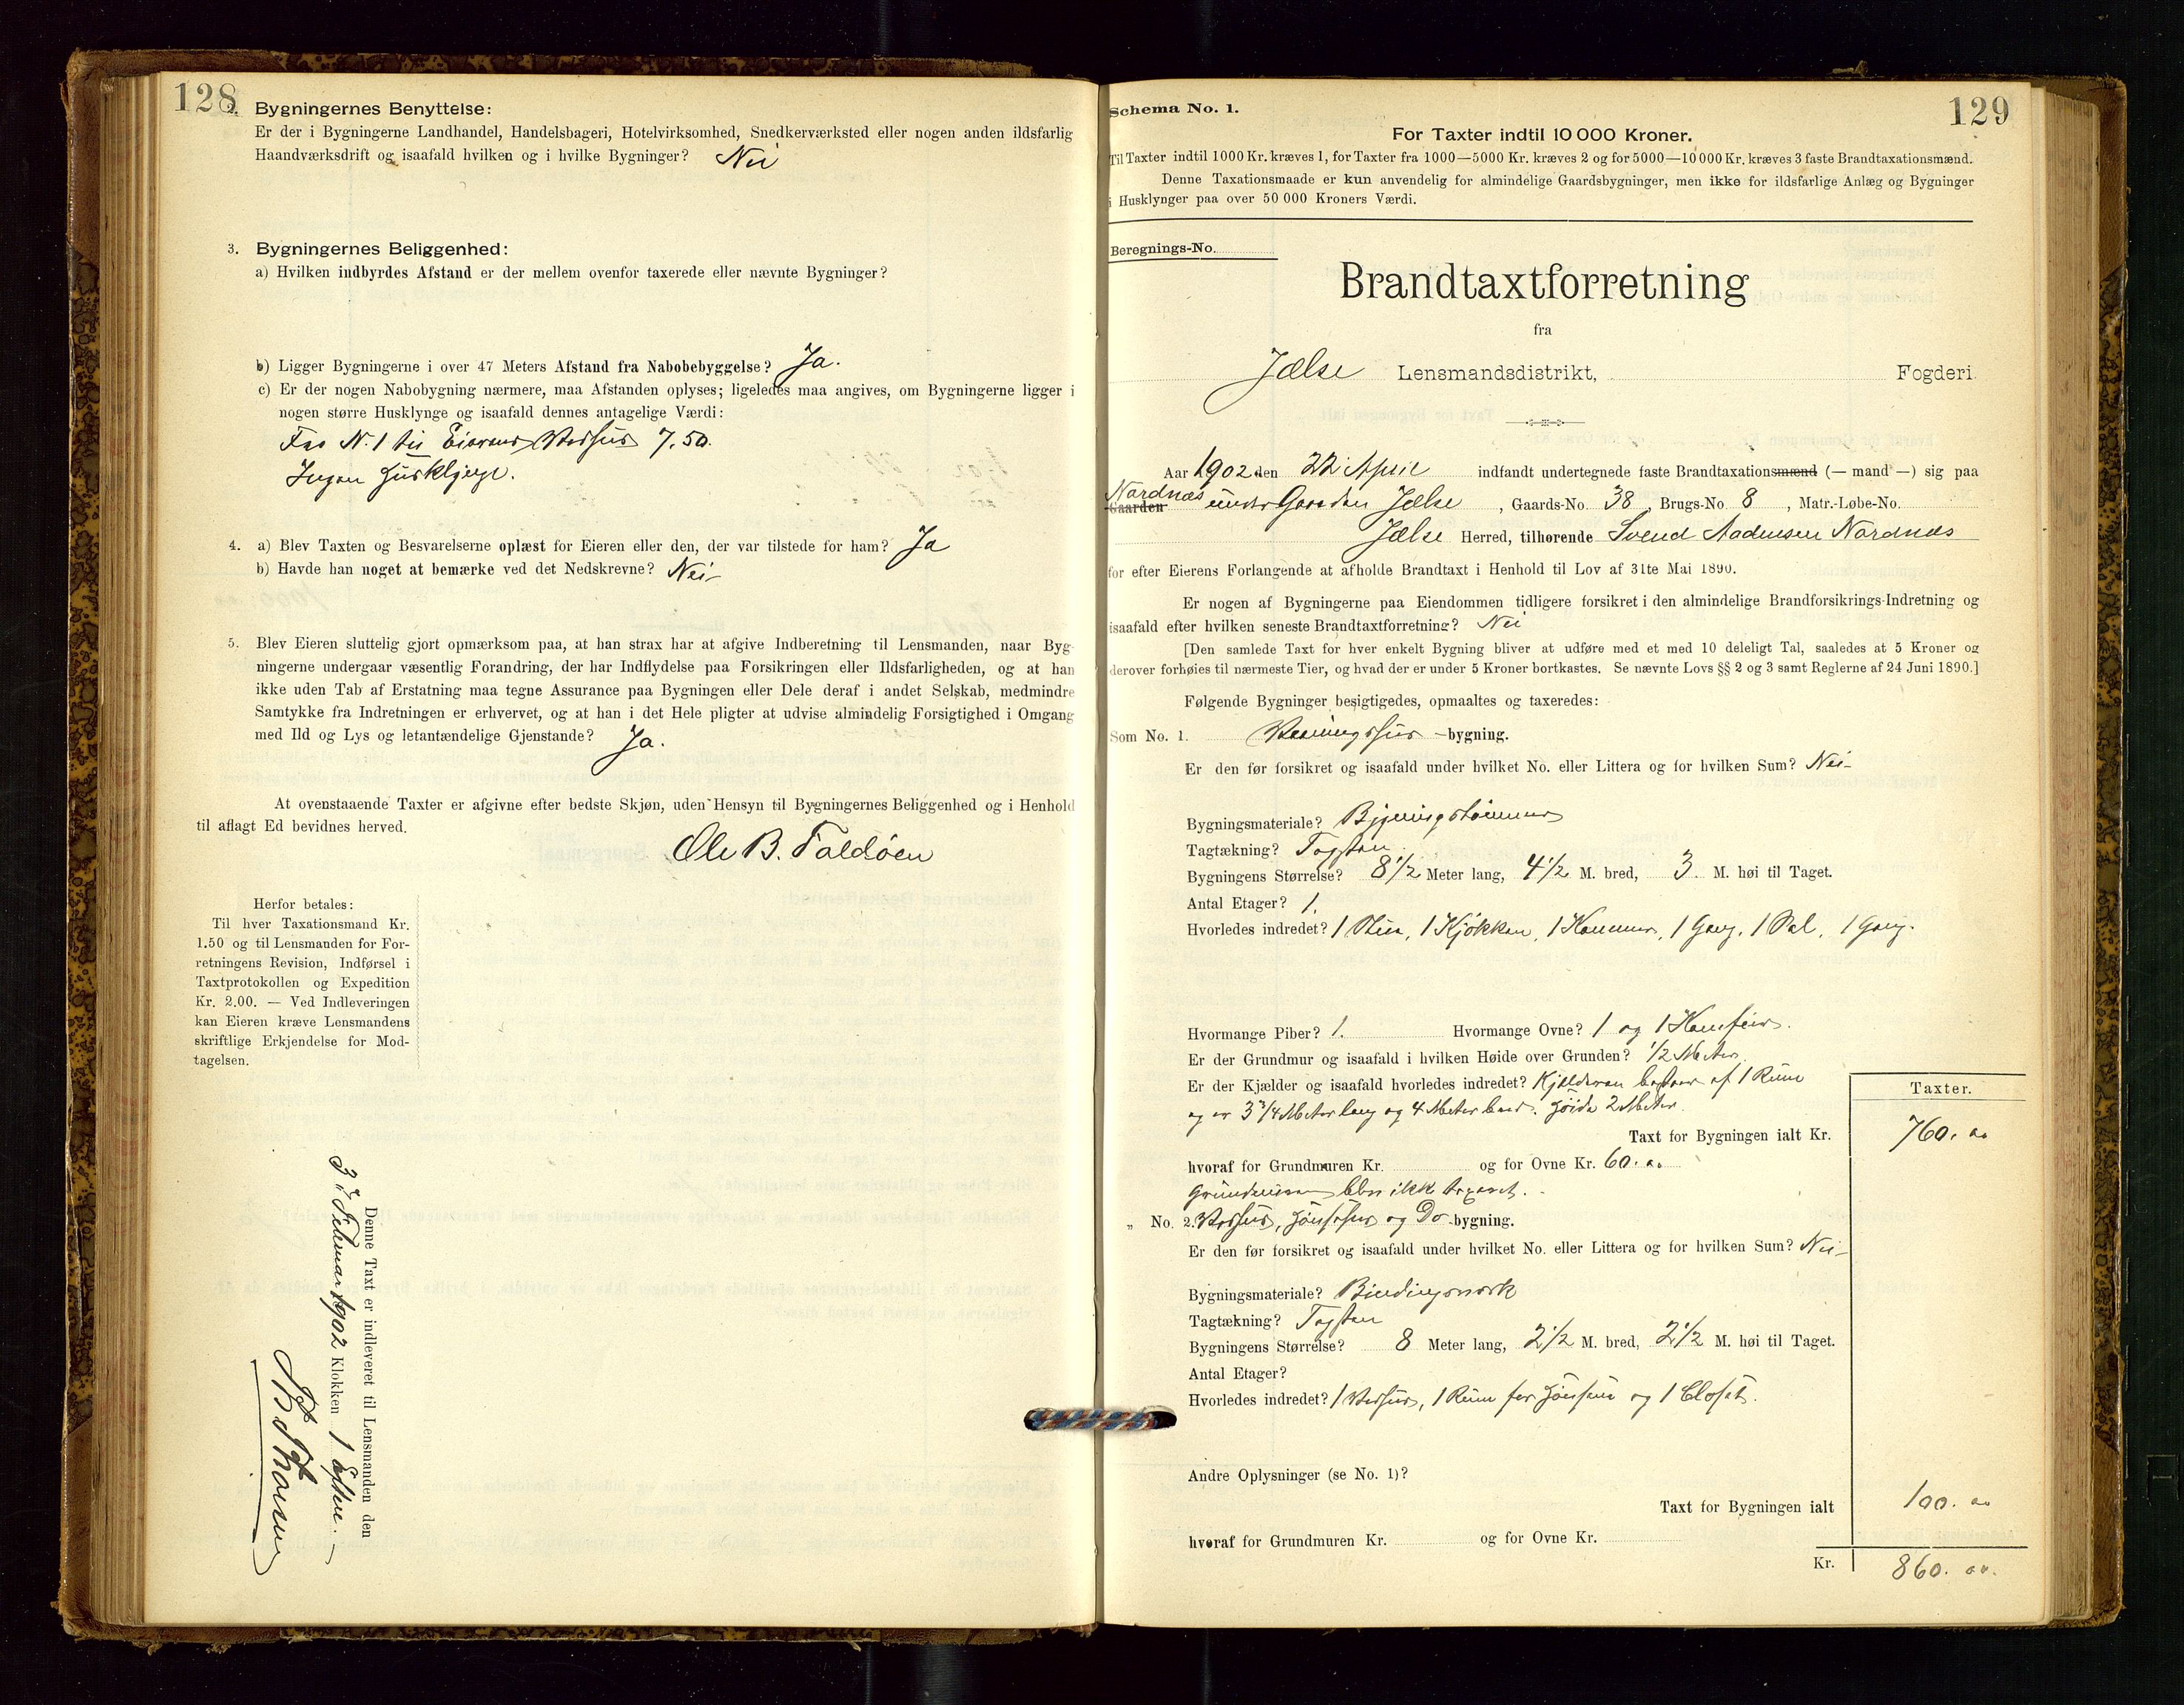 128
2. Bygningernes Benyttelse:
Er der i Bygningerne Landhandel, Handelsbageri, Hotelvirksomhed, Snedkerværksted eller nogen anden ildsfarlig
Haandværksdrift og isaafald hvilken og i hvilke Bygninger? Nei
3. Bygningernes Beliggenhed:
a) Hvilken indbyrdes Afstand er der mellem ovenfor taxerede eller nævnte Bygninger?
b) Ligger Bygningerne i over 47 Meters Afstand fra Nabobebyggelse? Ja.
c) Er der nogen Nabobygning nærmere, maa Afstanden oplyses; ligeledes maa angives, om Bygningerne ligger i
nogen større Husklynge og isaafald dennes antagelige Værdi:
Fra N. 1 til Eierens Vedhus 7,50.
Ingen Huskljnge.
4. a) Blev Taxten og Besvarelserne oplæst for Eieren eller den, der var tilstede for ham? Ja
b) Havde han noget at bemærke ved det Nedskrevne? Nei-
5. Blev Eieren sluttelig gjort opmærksom paa, at han strax har at afgive Indberetning til Lensmanden, naar Byg-
ningerne undergaar væsentlig Forandring, der har Indflydelse paa Forsikringen eller Ildsfarligheden, og at han
ikke uden Tab af Erstatning maa tegne Assurance paa Bygningen eller Dele deraf i andet Selskab, medmindre
Samtykke fra Indretningen er erhvervet, og at han i det Hele pligter at udvise almindelig Forsigtighed i Omgang
med Ild og Lys og letantændelige Gjenstande? Ja.
At ovenstaaende Taxter er afgivne efter bedste Skjøn, uden Hensyn til Bygningernes Beliggenhed og i Henhold
til aflagt Ed bevidnes herved.
Ole B. Foldöen
Herfor betales:
Til hver Taxationsmand Kr.
1.50 og til Lensmanden for For-
retningens Revision, Indførsel i
Taxtprotokollen og Expedition
Kr. 2.00. — Ved Indleveringen
kan Eieren kræve Lensmandens
skriftlige Erkjendelse for Mod-
tagelsen.
Denne Taxt er indleveret til Lensmanden den
3 Februar 1902 Klokken 1 Efterm.
129
Schema No. 1.
For Taxter indtil 10 000 Kroner.
Til Taxter indtil 1000 Kr. kræves 1, for Taxter fra 1000—5000 Kr. kræves 2 og for 5000—10 000 Kr. kræves 3 faste Brandtaxationsmænd.
Denne Taxationsmaade er kun anvendelig for almindelige Gaardsbygninger, men ikke for ildsfarlige Anlæg og Bygninger
i Husklynger paa over 50 000 Kroners Værdi.
Beregnings-No.
Brandtaxtforretning
fra
Jælse Lensmandsdistrikt, Fogderi.
Aar 1902 den 22 April indfandt undertegnede faste Brandtaxationsmænd (— mand —) sig paa
Nordnæs
Gaarden under Gaarden Jælse, Gaards-No. 38, Brugs-No. 8, Matr.-Løbe-No.
Jælse Herred, tilhørende Svend Aadnesen Nordnæs
for efter Eierens Forlangende at afholde Brandtaxt i Henhold til Lov af 31te Mai 1890.
Er nogen af Bygningerne paa Eiendommen tidligere forsikret i den almindelige Brandforsikrings-Indretning og
isaafald efter hvilken seneste Brandtaxtforretning? Nei
[Den samlede Taxt for hver enkelt Bygning bliver at udføre med et med 10 deleligt Tal, saaledes at 5 Kroner og
derover forhøies til nærmeste Tier, og hvad der er under 5 Kroner bortkastes. Se nævnte Lovs §§ 2 og 3 samt Reglerne af 24 Juni 1890.]
Følgende Bygninger besigtigedes, opmaaltes og taxeredes:
Som No. 1. Vaaningshus-bygning.
Er den før forsikret og isaafald under hvilket No. eller Littera og for hvilken Sum? Nei-
Bygningsmateriale? Bjgningstömmer
Tagtækning? Tagsten
Bygningens Størrelse? 8 1/2 Meter lang, 4 1/2 M. bred, 3 M. høi til Taget.
Antal Etager? 1.
Hvorledes indredet? 1 Stue, 1 Kjökken, 1 Kammer, 1 Gang, 1 Sal, 1 Gang.
Hvormange Piber? 1. Hvormange Ovne? 1 og 1 Komfeur.
Er der Grundmur og isaafald i hvilken Høide over Grunden? 1/2 Meter.
Er der Kjælder og isaafald hvorledes indredet? Kjælderen bestaar af 1 Rum
og er 3 3/4 Meter lang og 4 Meter bred. Höide 2 Meter.
Taxter.
Taxt for Bygningen ialt Kr. 760. oo
hvoraf for Grundmuren Kr. og for Ovne Kr. 60. oo
Grundmuren blev ikke taxeret.
„ No. 2. Vedhus, Hönsehus og Do-bygning.
Er den før forsikret og isaafald under hvilket No. eller Littera og for hvilken Sum? Nei-
Bygningsmateriale? Bindingsværk
Tagtækning? Tagsten
Bygningens Størrelse? 8 Meter lang, 2 1/2 M. bred, 2 1/2 M. høi til Taget.
Antal Etager?
Hvorledes indredet? 1 Vedhus, 1 Rum for Hönsene og 1 Closet.
Andre Oplysninger (se No. 1)?
Taxt for Bygningen ialt 100. oo
hvoraf for Grundmuren Kr. og for Ovne Kr.
Kr. 860. oo.